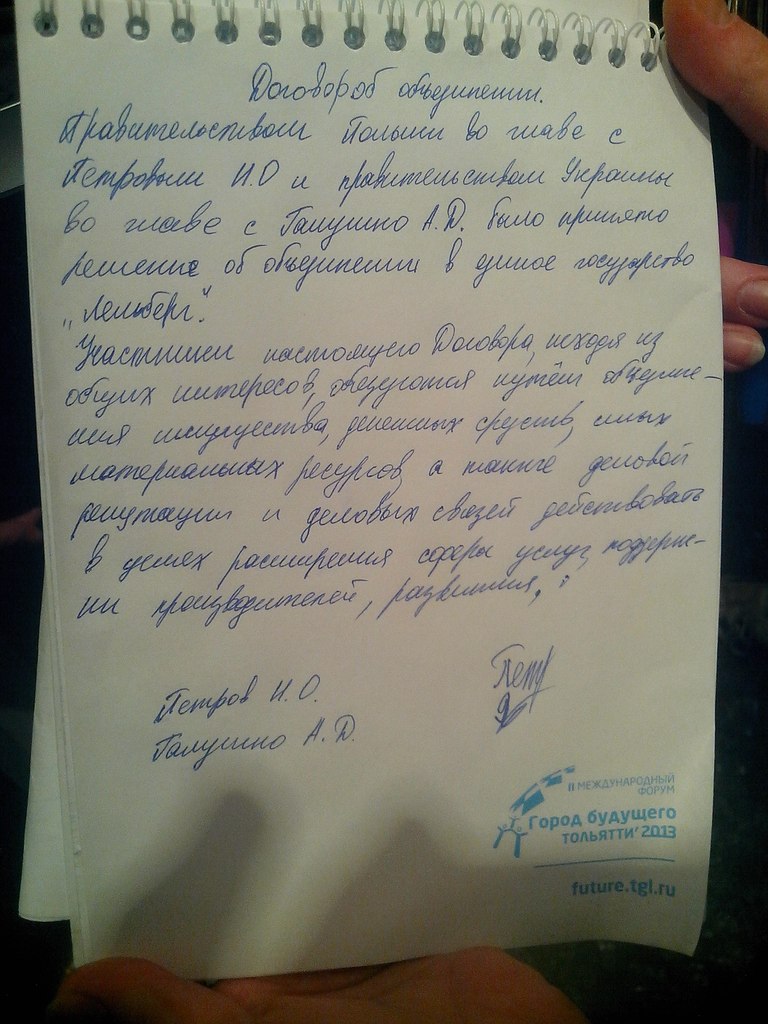 Договор об объединении.
Правительством Польши во главе с
Петровым И.О и правительством Украины
во главе с Галушко А.Д. было принято
решение об объединении в единое государство
„Лельберг".
Участники настоящего Договора, исходя из
общих интересов, обязуются путём объедине-
ния имущества, денежных средств, иных
материальных ресурсов, а также деловой
репутации и деловых связей действовать
в целях расширения сферы услуг, поддерж-
ки производителей, развития.
Петров И.О.
Петр
Галушко А.Д.
II МЕЖДУНАРОДНЫЙ
ФОРУМ
Город будущего
ТОЛЬЯТТИ'2013
future.tgl.ru